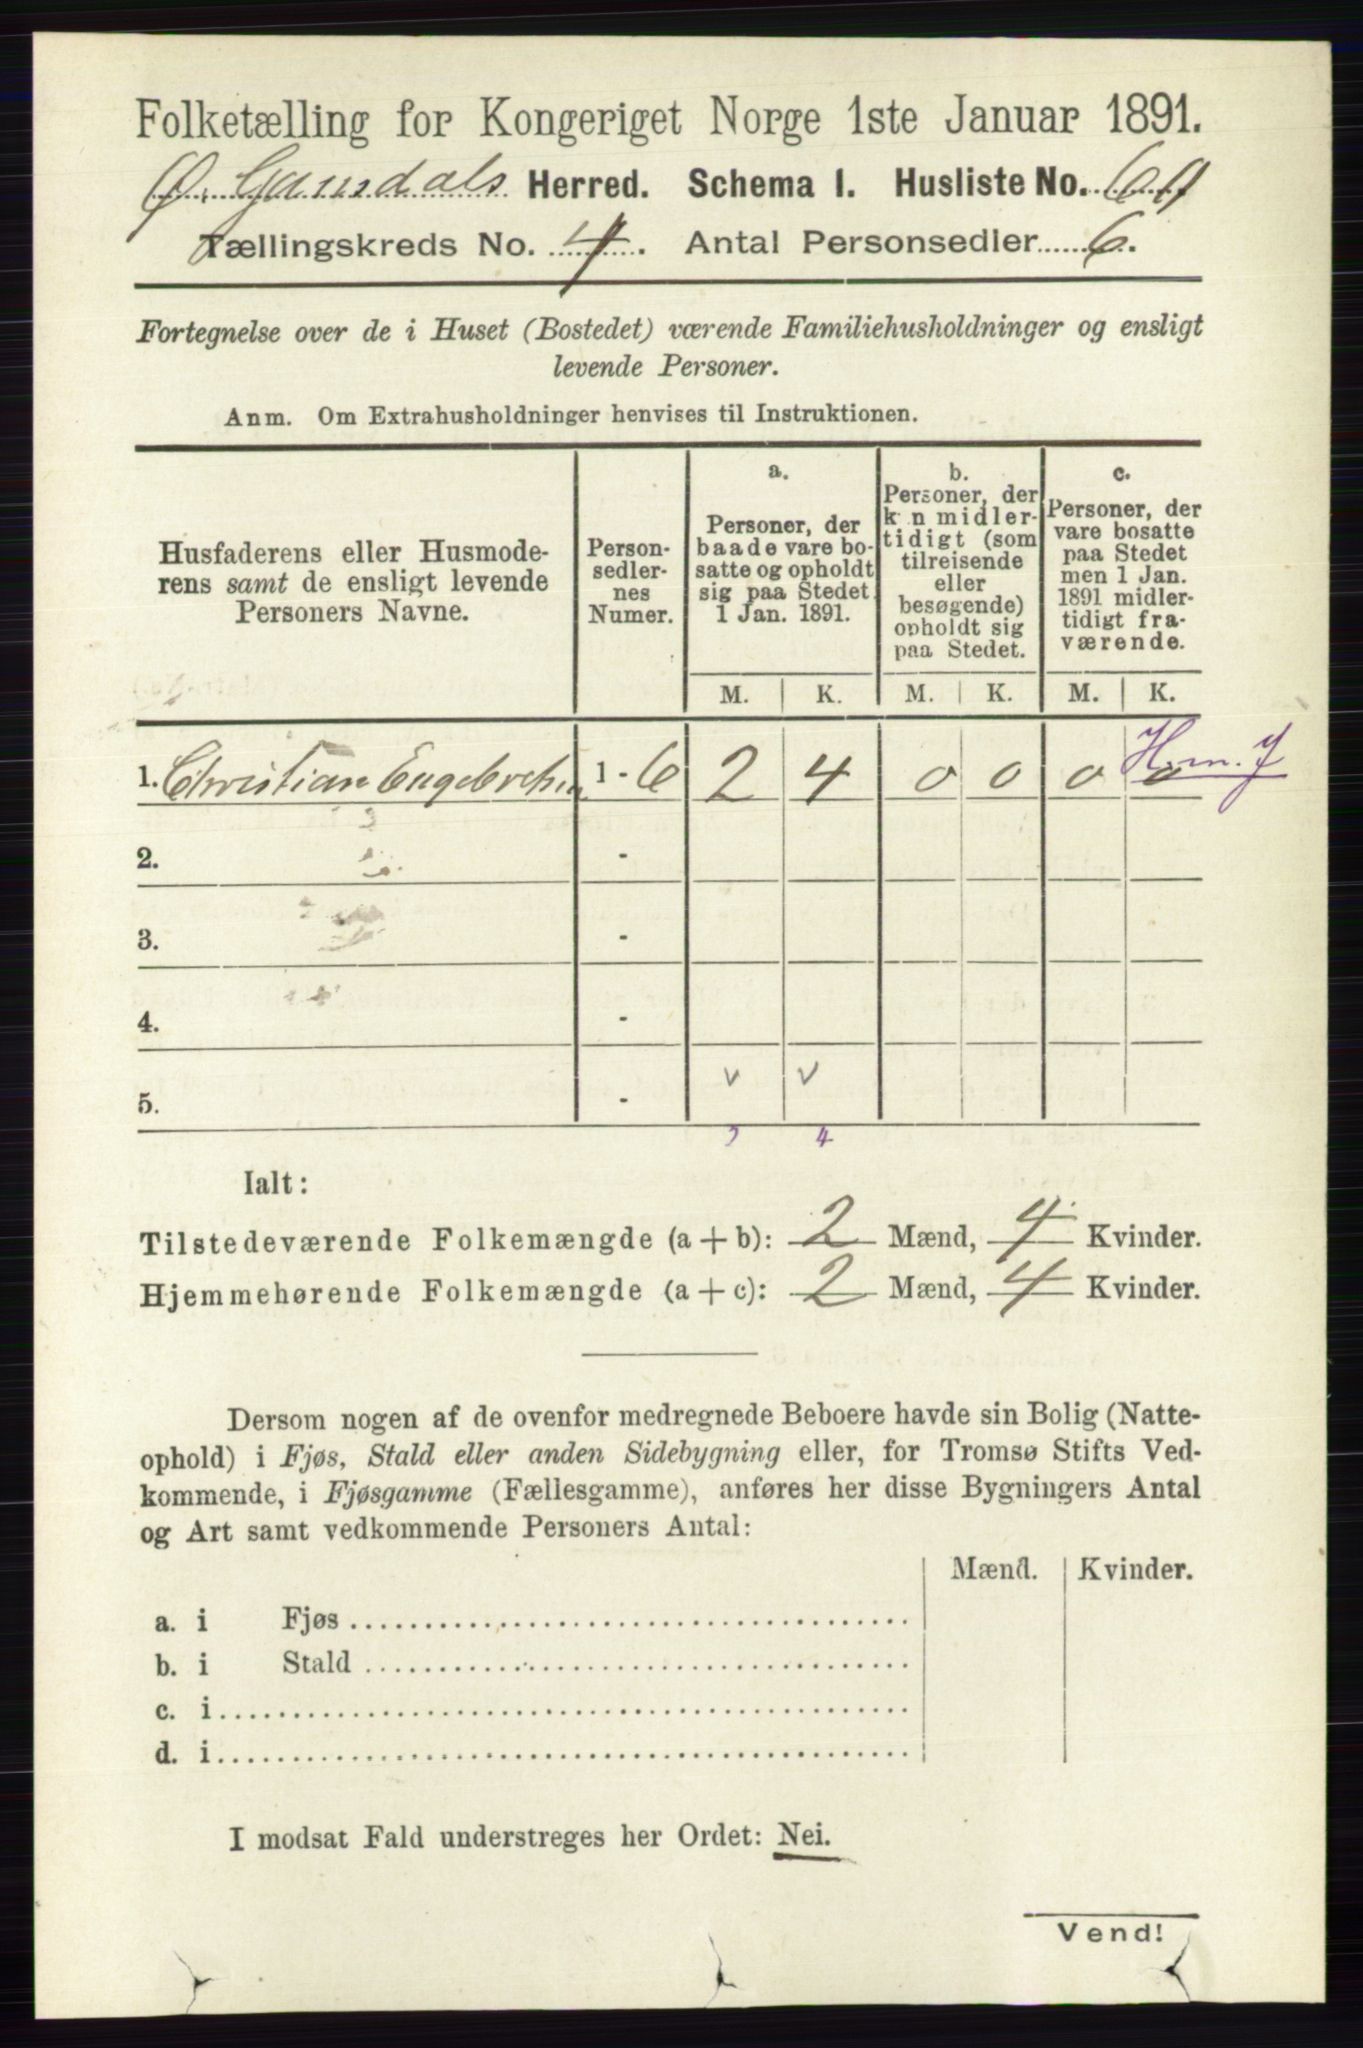 Folketælling for Kongeriget Norge 1ste Januar 1891.
Ø. Gausdals Herred. Schema I. Husliste No. 69
Tællingskreds No. 4. Antal Personsedler 6.
Fortegnelse over de i Huset (Bostedet) værende Familiehusholdninger og ensligt
levende Personer.
Anm. Om Extrahusholdninger henvises til Instruktionen.
Husfaderens eller Husmode-
rens samt de ensligt levende
Personers Navne.
Person-
sedler-
nes
Numer.
a.
Personer, der
baade vare bo-
satte og opholdt
sig paa Stedet
1 Jan. 1891.
b.
Personer, der
k n midler-
tidigt (som
tilreisende
eller
besøgende)
opholdt sig
paa Stedet.
c.
Personer, der
vare bosatte
paa Stedet
men 1 Jan.
1891 midler-
tidigt fra-
værende.
M. K. M. K. M. K.
1. Christian Engebretsen 1 - 6 2 4 0 0 0 0
2. -
3. -
4. -
v v
5. -
2 4
Ialt:
Tilstedeværende Folkemængde (a + b): 2 Mænd, 4 Kvinder.
Hjemmehørende Folkemængde (a + c): 2 Mænd, 4 Kvinder.
Dersom nogen af de ovenfor medregnede Beboere havde sin Bolig (Natte-
ophold) i Fjøs, Stald eller anden Sidebygning eller, for Tromsø Stifts Ved-
kommende, i Fjøsgamme (Fællesgamme), anføres her disse Bygningers Antal
og Art samt vedkommende Personers Antal:
Mænd. Kvinder.
a. i Fjøs
b. i Stald
c. i
d. i
I modsat Fald understreges her Ordet: Nei.
Vend!